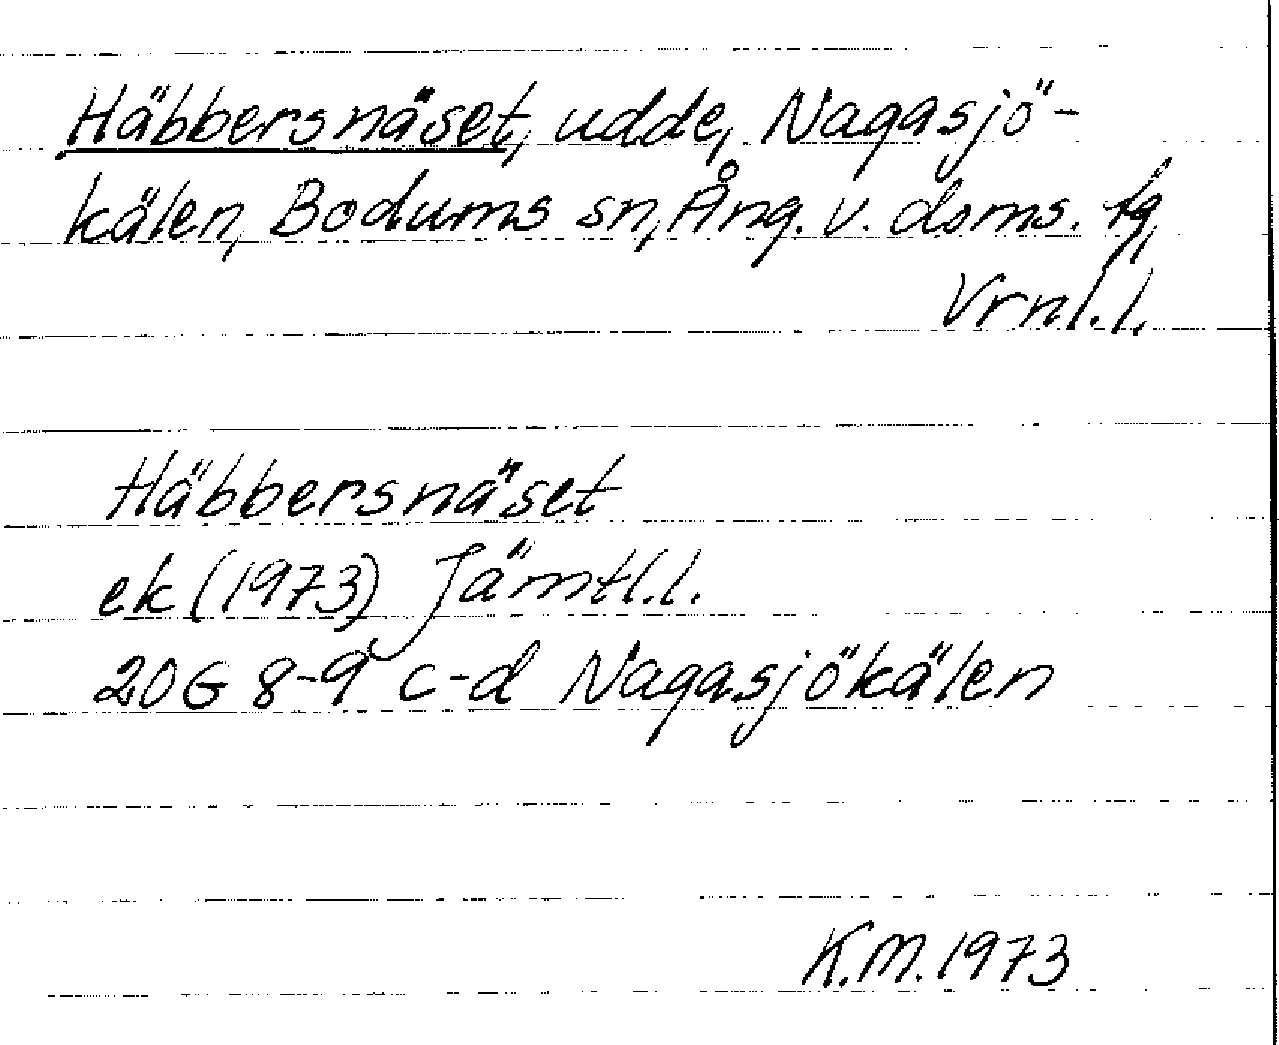 Häbbersnäset, udde, Nagasjö-
kälen, Bodums sn, Ång. v. doms. tg,
Vrnl. l.
Häbbersnäset
ek (1973) Jämtl. l.
20G 8-9 c-d Nagasjökälen
K.M. 1973